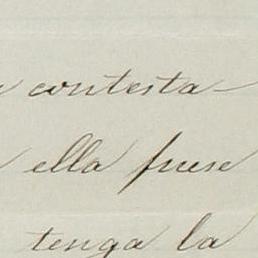 contesta-
ella fuese
tenga la